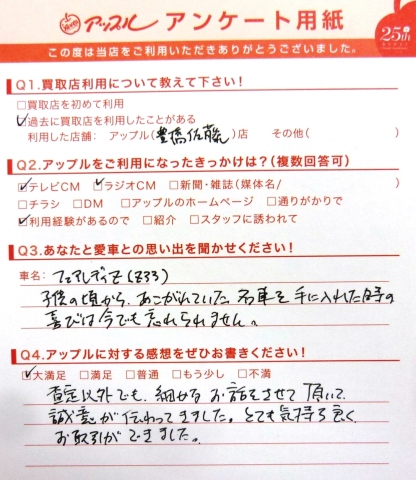 アップル アンケート用紙
25th
この度は当店をご利用いただきありがとうございました。
Q1.買取店利用について教えて下さい！
□買取店を初めて利用
☑過去に買取店を利用したことがある
利用した店舗： アップル（豊橋佐藤）店 その他（ ）
Q2.アップルをご利用になったきっかけは？（複数回答可）
☑テレビCM ☑ラジオCM □新聞・雑誌（媒体名/ ）
□チラシ □DM □アップルのホームページ □通りがかりで
☑利用経験があるので □紹介 □スタッフに誘われて
Q3.あなたと愛車との思い出を聞かせください！
車名： フェアレディZ（Z33）
子供の頃から、あこがれていた、名車を手に入れた時の
喜びは今でも忘れられません。
Q4.アップルに対する感想をぜひお書きください！
☑大満足 □満足 □普通 □もう少し □不満
査定以外でも、細かな お話をさせて頂いて、
誠意が伝わってきました。とても気持ち良く
お取引ができました。